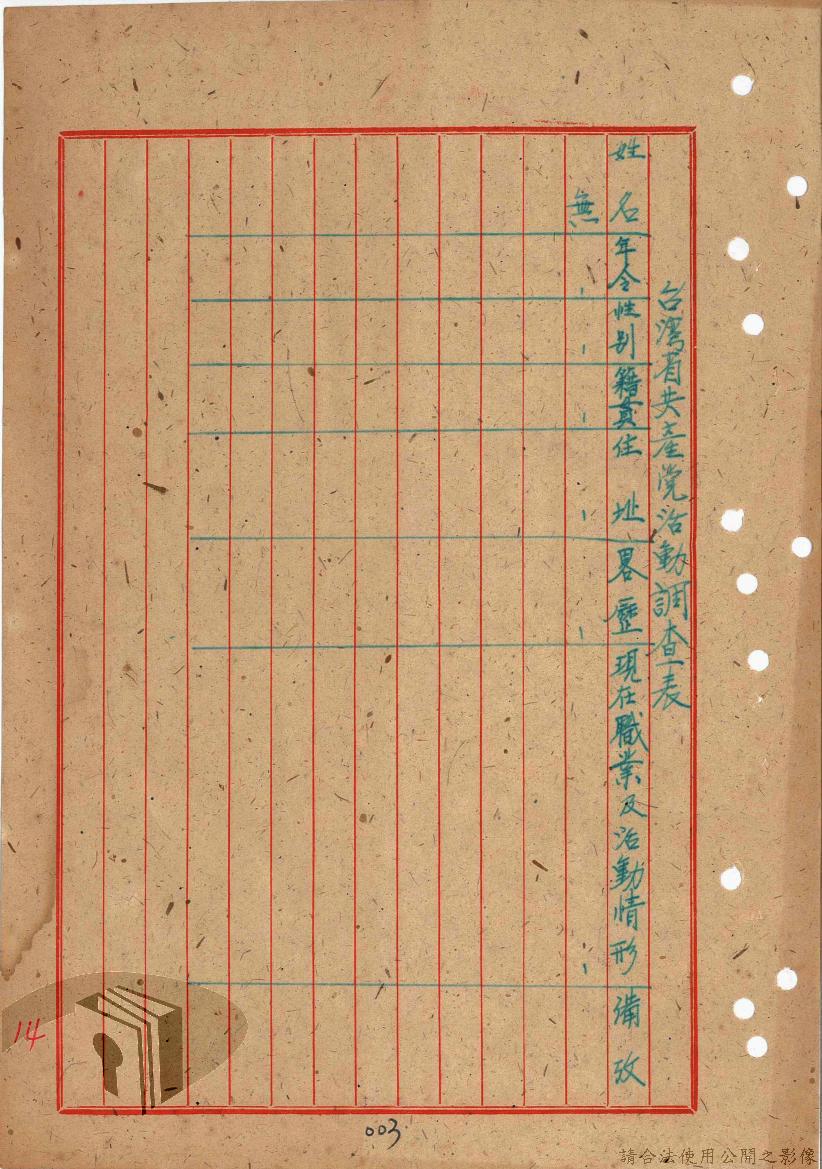 台湾省共産党活動調查表
姓名 年令 性别 籍貫 住址 畧歷 現在職業及活動情形 備攷
無
14
003
請合法使用公開之影像